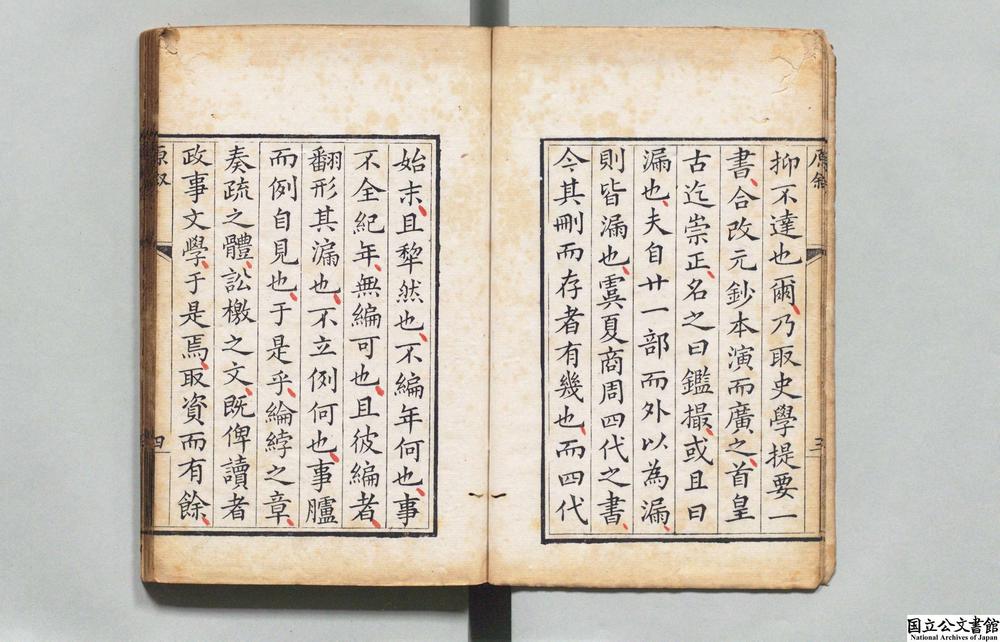 原叙
三
抑不達也爾乃取史學提要一
書合改元鈔本演而廣之首皇
古迄崇正名之曰鑑撮或且曰
漏也夫自廿一部而外以為漏
則皆漏也虞夏商周四代之書
今其刪而存者有幾也而四代
始末且犂然也不編年何也事
不全紀年無編可也且彼編者
翻形其漏也不立例何也事臚
而例自見也于是乎綸綍之章
奏疏之體訟檄之文既俾讀者
政事文學于是焉取資而有餘
原叙
四
国立公文書館
National Archives of Japan